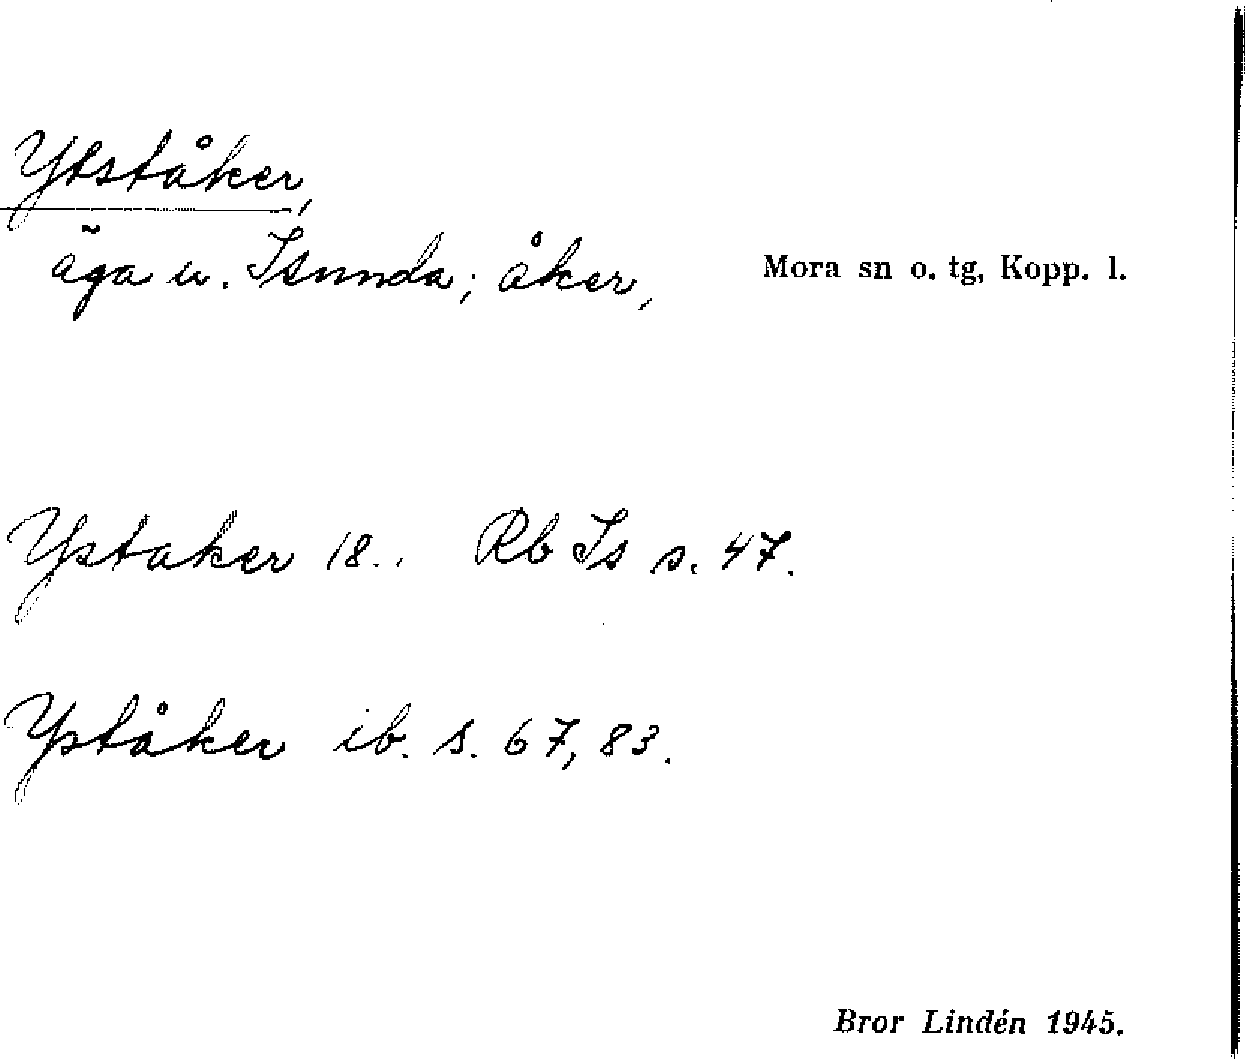 Ytståker,
äga u. Isunda; åker, Mora sn o. tg, Kopp. l.
Ystaker 18.. Rb Is s. 47.
Yståker ib. s. 67, 83.
Bror Lindén 1945.